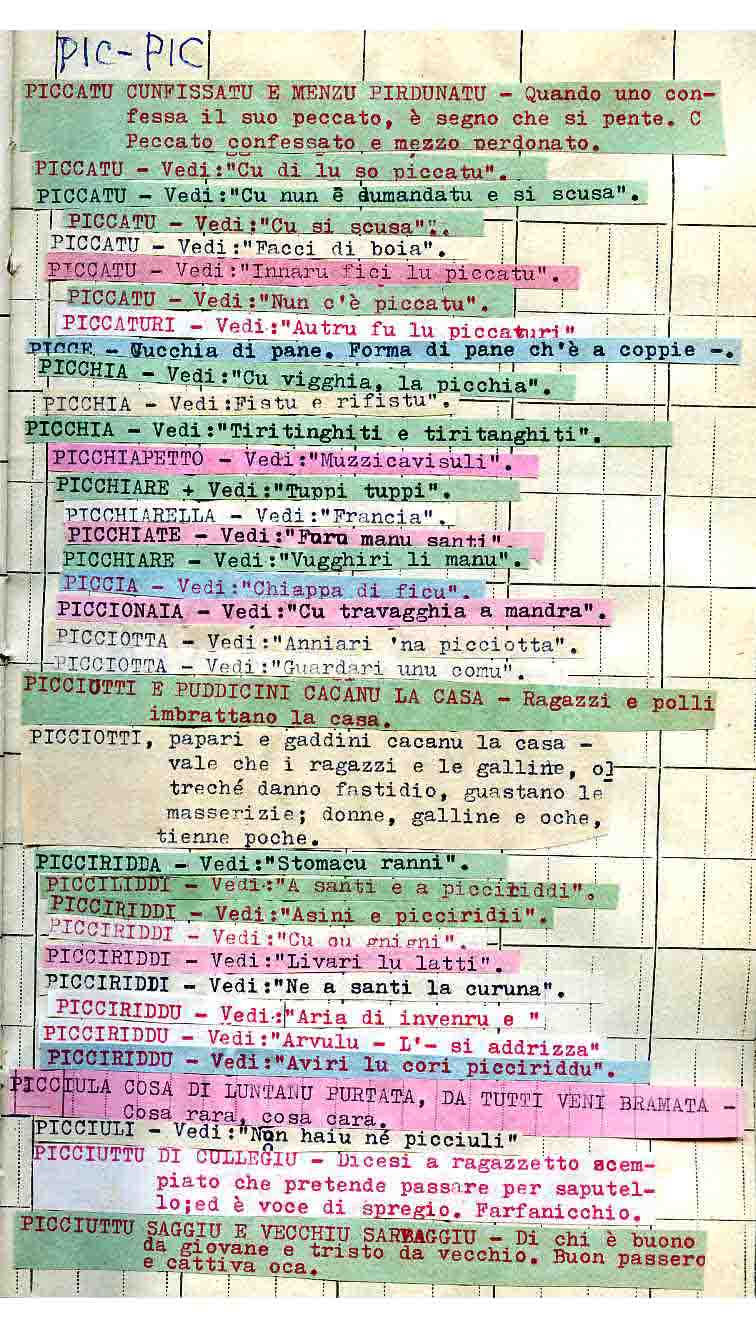 PIC-PIC
PICCATU CUNFISSATU E MENZU PIRDUNATU - Quando uno con-
fessa il suo peccato, è segno che si pente. C
Peccato confessato e mezzo perdonato.
PICCATU - Vedi:"Cu di lu so piccatu".
PICCATU - Vedi:"Cu nun è dumandatu e si scusa".
PICCATU - Vedi:"Cu si scusa".
PICCATU - Vedi:"Facci di boia".
PICCATU - Vedi:"Innaru fici lu piccatu".
PICCATU - Vedi:"Nun c'è piccatu".
PICCATURI - Vedi:"Autru fu lu piccaturi"
PICCE - Cucchia di pane. Forma di pane ch'è a coppie -.
PICCHIA - Vedi:"Cu vigghia, la picchia".
PICCHIA - Vedi:Fistu e rifistu".
PICCHIA - Vedi:"Tiritinghiti e tiritanghiti".
PICCHIAPETTO - Vedi:"Muzzicavisuli".
PICCHIARE + Vedi:"Tuppi tuppi".
PICCHIARELLA - Vedi:"Francia".
PICCHIATE - Vedi:"Furu manu santi".
PICCHIARE - Vedi:"Vugghiri li manu".
PICCIA - Vedi:"Chiappa di ficu".
PICCIONAIA - Vedi:"Cu travagghia a mandra".
PICCIOTTA - Vedi:"Anniari 'na picciotta".
PICCIOTTA - Vedi:"Guardari unu comu".
PICCIUTTI E PUDDICINI CACANU LA CASA - Ragazzi e polli
imbrattano la casa.
PICCIOTTI, papari e gaddini cacanu la casa -
vale che i ragazzi e le galline, ol
treché danno fastidio, guastano le
masserizie; donne, galline e oche,
tienne poche.
PICCIRIDDA - Vedi:"Stomacu ranni".
PICCILIDDI - Vedi:"A santi e a picciriddi".
PICCIRIDDI - Vedi:"Asini e picciridii".
PICCIRIDDI - Vedi:"Cu qu gnigni".
PICCIRIDDI - Vedi:"Livari lu latti".
PICCIRIDDI - Vedi:"Ne a santi la curuna".
PICCIRIDDU - Vedi:"Aria di invenru e "
PICCIRIDDU - Vedi:"Arvulu - L'- si addrizza"
PICCIRIDDU - Vedi:"Aviri lu cori picciriddu".
PICCIULA COSA DI LUNTANU PURTATA, DA TUTTI VENI BRAMATA -
Cosa rara, cosa cara.
PICCIULI - Vedi:"Non haiu né picciuli"
PICCIUTTU DI CULLEGIU - Dicesi a ragazzetto scem-
piato che pretende passare per saputel-
lo;ed è voce di spregio. Farfanicchio.
PICCIUTTU SAGGIU E VECCHIU SARBAGGIU - Di chi è buono
da giovane e tristo da vecchio. Buon passero
e cattiva oca.